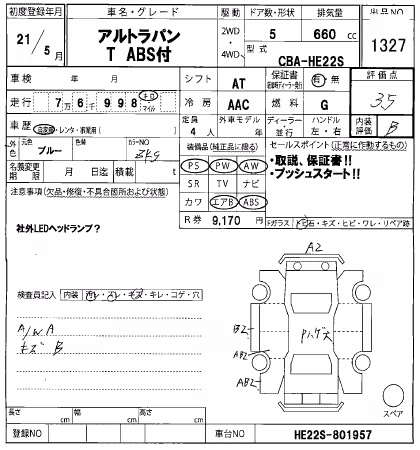 初度登録年月 車名・グレード 駆動 ドア数・形状 排気量 出品NO
21/5月 アルトラパン T ABS付 2WD・4WD 5 660 cc 1327
型式 CBA-HE22S
車検 年 月 シフト AT 保証書 有・無 評価点
走行 7万6千998 キロ マイル 冷房 AAC 燃料 G 3.5
車歴 自家用・レンタ・事業用( ) 定員 4人 外車モデル 年 ディーラー 並行 ハンドル 左・右 内装評価 B
外色 元色 ブルー 色替 カラーNO ZKG
装備品(純正品に限る) セールスポイント(正常に動作するもの)
名義変更期限 月 日迄 積載 t
PS PW AW
・取説、保証書!!
・プッシュスタート!!
注意事項(欠品・修復・不具合箇所および状態)
SR TV ナビ
カワ エアB ABS
R券 9,170 円
Fガラス トビ石・キズ・ヒビ・ワレ・リペア跡
社外LEDヘッドランプ?
検査員記入 内装 汚レ・スレ・キズ・キレ・コゲ・穴
A/W A
キズ B
A2
B2
AB2
AB2
Pハゲ大
スペア
長さ cm 幅 cm 高さ cm
登録NO 車台NO HE22S-801957